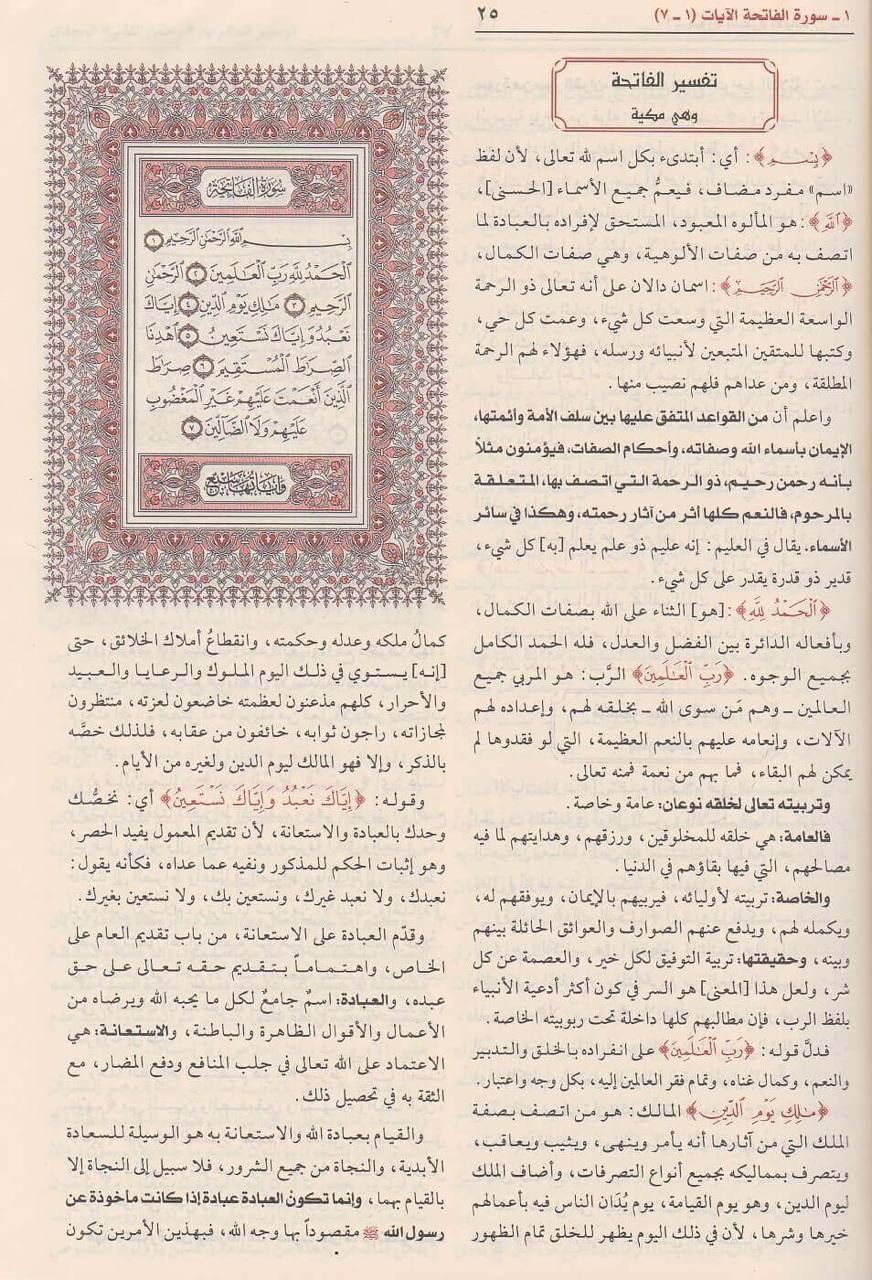 ١ ـ سورة الفاتحة الآيات (١ ـ ٧)
٢٥
تفسير الفاتحة
وهي مكية
﴿بِسْمِ﴾: أي: أبتدىء بكل اسم لله تعالى، لأن لفظ
«اسم» مفرد مضاف، فيعمُّ جميع الأسماء [الحسنى]،
﴿اللَّهِ﴾: هو المألوه المعبود، المستحق لإفراده بالعبادة لما
اتصف به من صفات الألوهية، وهي صفات الكمال،
﴿الرَّحْمَٰنِ الرَّحِيمِ﴾: اسمان دالان على أنه تعالى ذو الرحمة
الواسعة العظيمة التي وسعت كل شيء، وعمت كل حي،
وكتبها للمتقين المتبعين لأنبيائه ورسله، فهؤلاء لهم الرحمة
المطلقة، ومن عداهم فلهم نصيب منها.
واعلم أن من القواعد المتفق عليها بين سلف الأمة وأئمتها،
الإيمان بأسماء الله وصفاته، وأحكام الصفات، فيؤمنون مثلاً
بأنه رحمن رحيم، ذو الرحمة التي اتصف بها، المتعلقة
بالمرحوم، فالنعم كلها أثر من آثار رحمته، وهكذا في سائر
الأسماء. يقال في العليم: إنه عليم ذو علم يعلم [به] كل شيء،
قدير ذو قدرة يقدر على كل شيء.
﴿الْحَمْدُ لِلَّهِ﴾: [هو] الثناء على الله بصفات الكمال،
وبأفعاله الدائرة بين الفضل والعدل، فله الحمد الكامل
بجميع الوجوه. ﴿رَبِّ الْعَٰلَمِينَ﴾ الرَّب: هو المربي جميع
العالمين ـ وهم مَن سوى الله ـ بخلقه لهم، وإعداده لهم
الآلات، وإنعامه عليهم بالنعم العظيمة، التي لو فقدوها لم
يمكن لهم البقاء، فما بهم من نعمة فمنه تعالى.
وتربيته تعالى لخلقه نوعان: عامة وخاصة.
فالعامة: هي خلقه للمخلوقين، ورزقهم، وهدايتهم لما فيه
مصالحهم، التي فيها بقاؤهم في الدنيا.
والخاصة: تربيته لأوليائه، فيربيهم بالإيمان، ويوفقهم له،
ويكمله لهم، ويدفع عنهم الصوارف والعوائق الحائلة بينهم
وبينه، وحقيقتها: تربية التوفيق لكل خير، والعصمة عن كل
شر، ولعل هذا [المعنى] هو السر في كون أكثر أدعية الأنبياء
بلفظ الرب، فإن مطالبهم كلها داخلة تحت ربوبيته الخاصة.
فدلَّ قوله: ﴿رَبِّ الْعَٰلَمِينَ﴾ على انفراده بالخلق والتدبير
والنعم، وكمال غناه، وتمام فقر العالمين إليه، بكل وجه واعتبار.
﴿مَٰلِكِ يَوْمِ الدِّينِ﴾ المالك: هو من اتصف بصفة
الملك التي من آثارها أنه يأمر وينهى، ويثيب ويعاقب،
ويتصرف بمماليكه بجميع أنواع التصرفات، وأضاف الملك
ليوم الدين، وهو يوم القيامة، يوم يُدَان الناس فيه بأعمالهم
خيرها وشرها، لأن في ذلك اليوم يظهر للخلق تمام الظهور
سُورَةُ الفَاتِحَةِ
بِسْمِ اللَّهِ الرَّحْمَٰنِ الرَّحِيمِ ١
الْحَمْدُ لِلَّهِ رَبِّ الْعَٰلَمِينَ ٢ الرَّحْمَٰنِ
الرَّحِيمِ ٣ مَٰلِكِ يَوْمِ الدِّينِ ٤ إِيَّاكَ
نَعْبُدُ وَإِيَّاكَ نَسْتَعِينُ ٥ اهْدِنَا
الصِّرَٰطَ الْمُسْتَقِيمَ ٦ صِرَٰطَ
الَّذِينَ أَنْعَمْتَ عَلَيْهِمْ غَيْرِ الْمَغْضُوبِ
عَلَيْهِمْ وَلَا الضَّالِّينَ ٧
وآياتها سبع
كمالُ ملكه وعدله وحكمته، وانقطاعُ أملاك الخلائق، حتى
[إنه] يستوي في ذلك اليوم الملوك والرعايا والعبيد
والأحرار، كلهم مذعنون لعظمته خاضعون لعزته، منتظرون
لمجازاته، راجون ثوابه، خائفون من عقابه، فلذلك خصَّه
بالذكر، وإلا فهو المالك ليوم الدين ولغيره من الأيام.
وقوله: ﴿إِيَّاكَ نَعْبُدُ وَإِيَّاكَ نَسْتَعِينُ﴾ أي: نخصُّك
وحدك بالعبادة والاستعانة، لأن تقديم المعمول يفيد الحصر،
وهو إثبات الحكم للمذكور ونفيه عما عداه، فكأنه يقول:
نعبدك، ولا نعبد غيرك، ونستعين بك، ولا نستعين بغيرك.
وقدّم العبادة على الاستعانة، من باب تقديم العام على
الخاص، واهتماماً بتقديم حقه تعالى على حق
عبده، والعبادة: اسمٌ جامعٌ لكل ما يحبه الله ويرضاه من
الأعمال والأقوال الظاهرة والباطنة، والاستعانة: هي
الاعتماد على الله تعالى في جلب المنافع ودفع المضار، مع
الثقة به في تحصيل ذلك.
والقيام بعبادة الله والاستعانة به هو الوسيلة للسعادة
الأبدية، والنجاة من جميع الشرور، فلا سبيل إلى النجاة إلا
بالقيام بهما، وإنما تكونُ العبادة عبادة إذا كانت مأخوذة عن
رسول الله ﷺ مقصوداً بها وجه الله، فبهذين الأمرين تكون